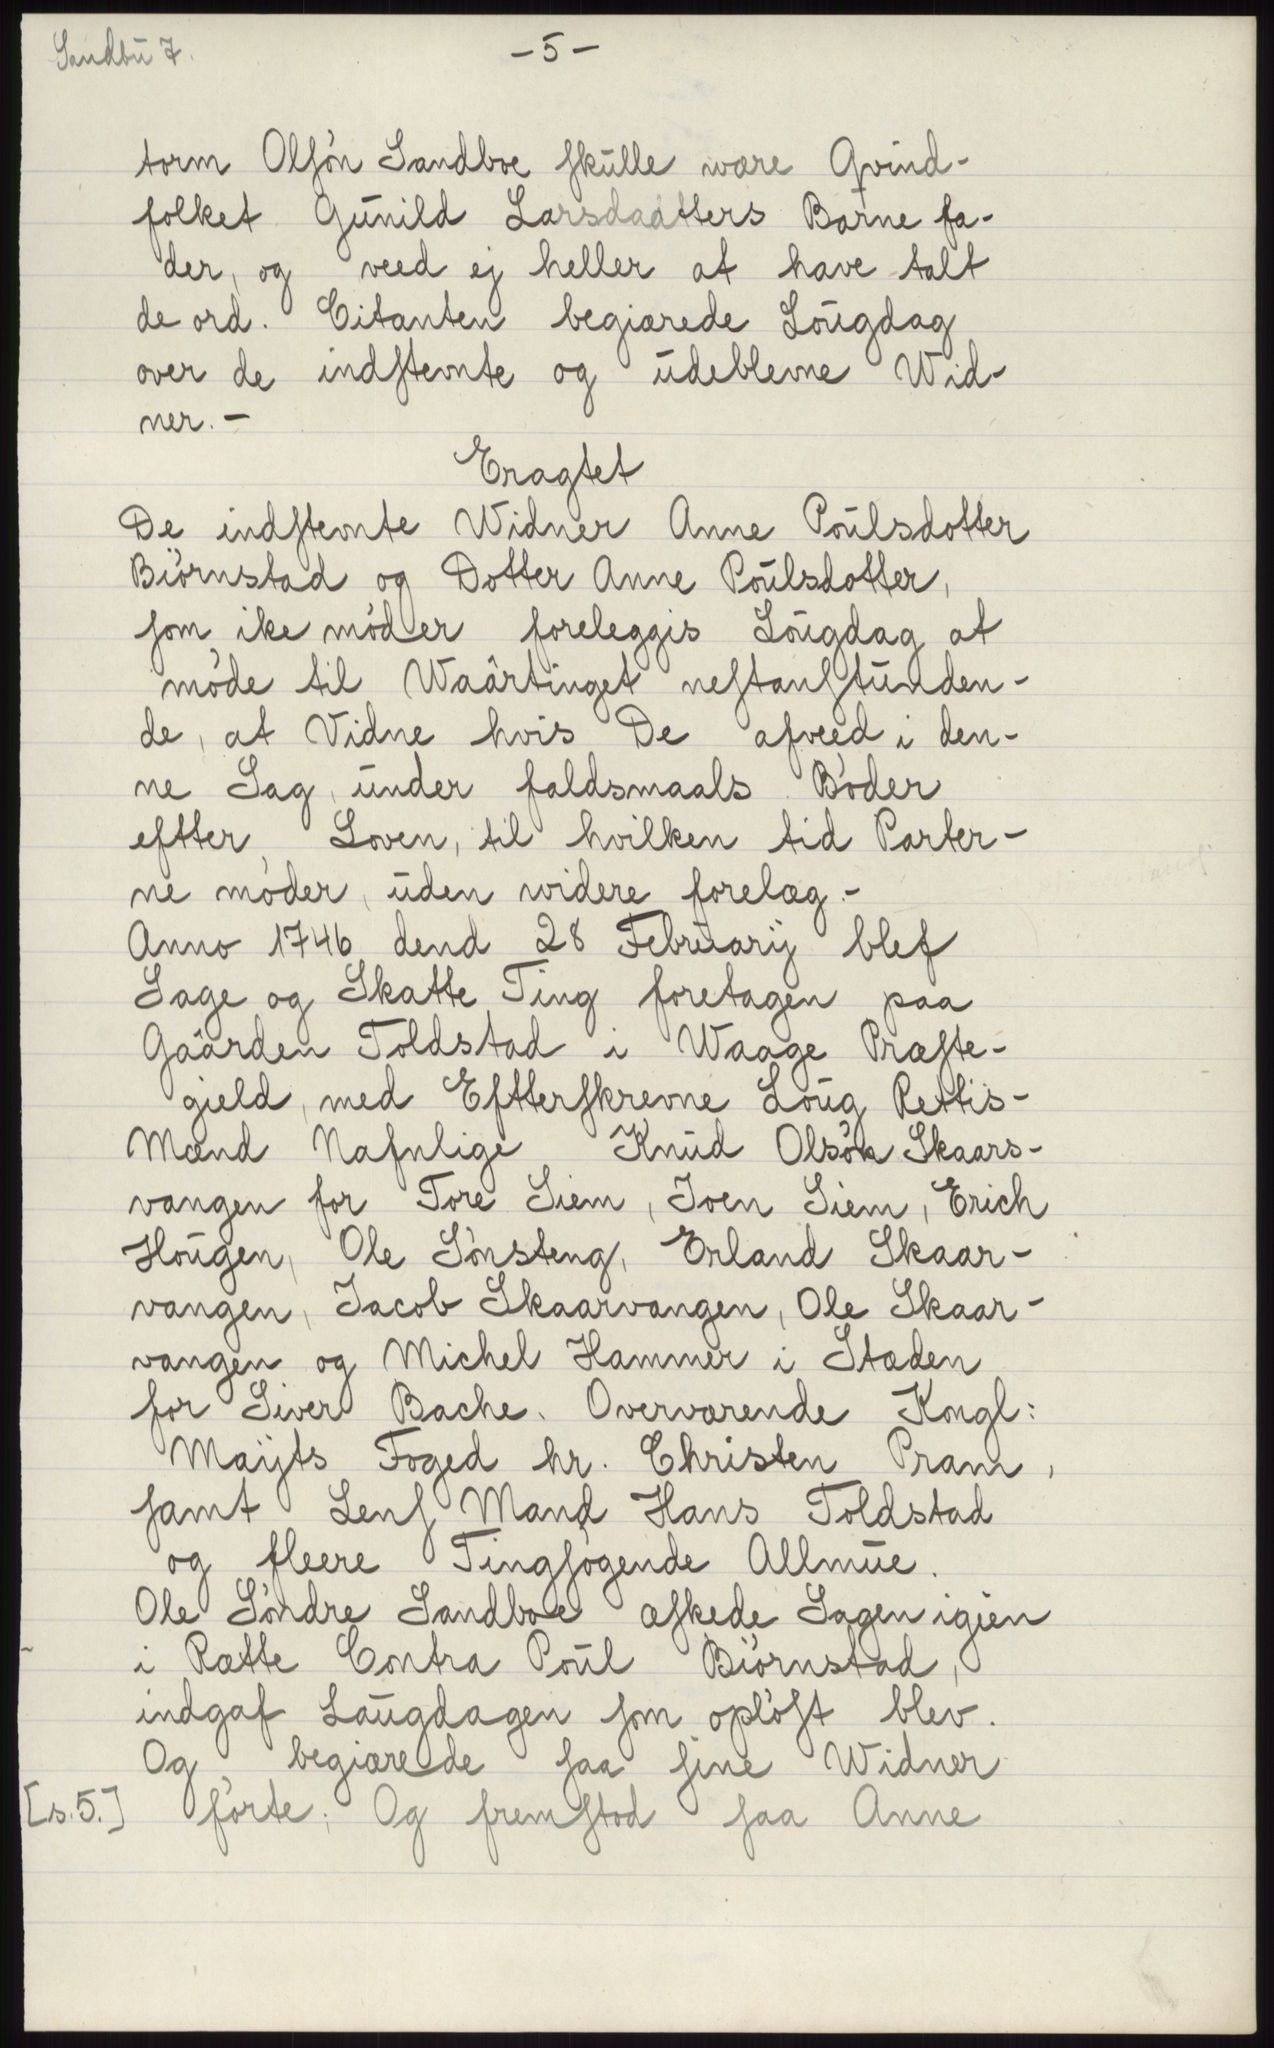 Sandbu 7.
- 5 -
torm Olsøn Sandboe skulle være Qvind-
folket Gunild Larsdaatters Barne fa-
der, og veed ej heller at have talt
de ord. Citanten begiærede Lougdag
over de indstevnte og udeblevne Wid-
ner. -
Eragtet
De indstevnte Widner Anne Poulsdotter
Biørnstad og Dotter Anne Poulsdotter,
som ike møder foreleggis Lougdag at
møde til Waartinget nestanstunden-
de, at Vidne hvis De afveed i den-
ne Sag, under faldsmaals Bøder
efter Loven, til hvilken tid Parter-
ne møder, uden widere forelæg.-
Anno 1746 dend 28 Februarij blef
Sage og Skatte Ting foretagen paa
Gaarden Toldstad i Waage Præste-
gield, med Efterskrevne Loug Rettis-
Mænd Nafnlige Knud Olsøn Skaars-
vangen for Tore Siem, Joen Siem, Erich
Hougen, Ole Sønsteng, Erland Skaar-
vangen, Jacob Skaarvangen, Ole Skaar-
vangen og Michel Hammer i Stæden
for Siver Bache. Overværende Kongl:
Mayts Foged hr. Christen Pram,
samt Lens Mand Hans Toldstad
og fleere Tingsøgende Allmue.
Ole Søndre Sandboe æskede Sagen igien
i Rætte Contra Poul Biørnstad,
indgaf Laugdagen som opløst blev.
Og begiærede saa sine Widner
[s.5.] førte; Og fremstod saa Anne